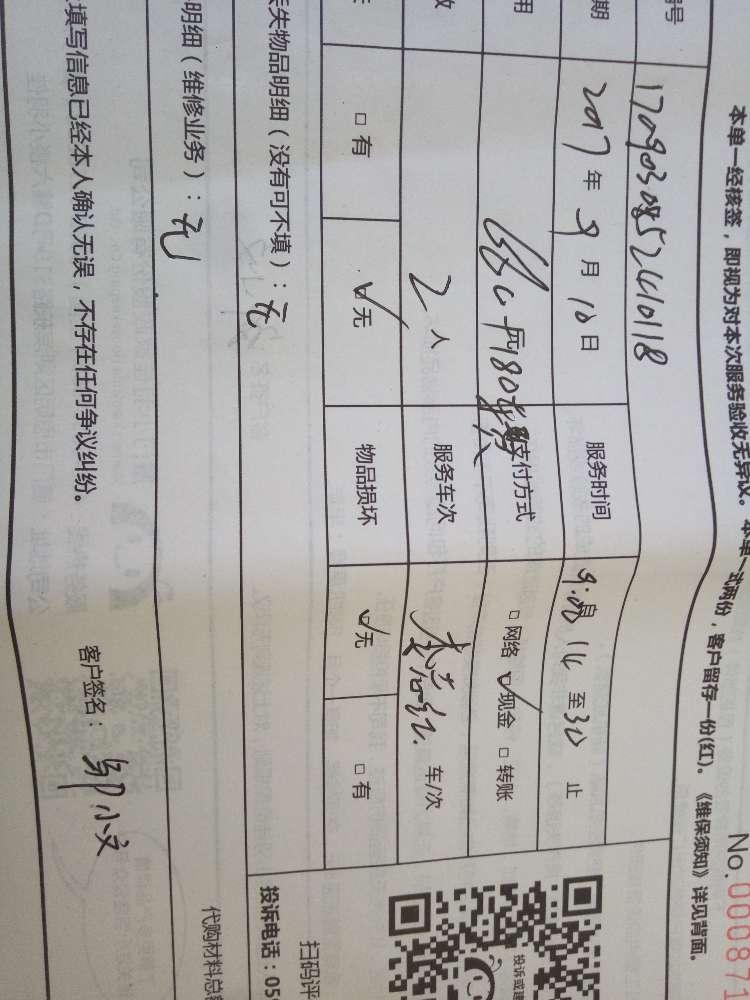 本单一经核签，即视为对本次服务验收无异议。本单一式两份，客户留存一份(红)。《维保须知》详见背面。
No.0000871
号
期 2017年9月10日 服务时间 至30止
用 支付方式 □网络 ☑现金 □转账
数 2人 服务车次 车/次
□有 ☑无 物品损坏 ☑无 □有
失物品明细（没有可不填）：无
明细（维修业务）：无
填写信息已经本人确认无误，不存在任何争议纠纷。
客户签名：邹小文
投诉或建
扫码评
投诉电话：05
代购材料总